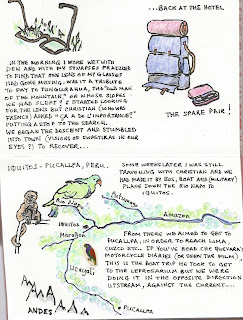 ...BACK AT THE HOTEL
IN THE MORNING I WOKE WET WITH
DEW AND WITH MY SYNAPSES FRAZZLED
TO FIND THAT ONE LENS OF MY GLASSES
HAD GONE MISSING. WAS IT A TRIBUTE
TO PAY TO TUNGURAHUA, THE "OLD MAN
OF THE MOUNTAIN," ON WHOSE SLOPES
WE HAD SLEPT? I STARTED LOOKING
FOR THE LENS BUT CHRISTIAN (WHO WAS
FRENCH) ASKED "ÇA A DE L'IMPORTANCE?"
PUTTING A STOP TO THE SEARCH.
WE BEGAN THE DESCENT AND STUMBLED
INTO TOWN (VISIONS OF CUMBERTATAS IN OUR
EYES?) TO RECOVER...
THE SPARE PAIR!
IQUITOS - PUCALLPA, PERU.
SOME WEEKS LATER I WAS STILL
TRAVELLING WITH CHRISTIAN AND WE
HAD MADE IT BY BUS, BOAT AND (MILITARY)
PLANE DOWN THE RIO NAPO TO
IQUITOS.
Rio Napo
Putumayo
Amazon
Iquitos
Marañon
Ucayali
FROM THERE WE AIMED TO GET TO
PUCALLPA, IN ORDER TO REACH LIMA,
CUZCO ETC. IF YOU'VE READ CHE GUEVARA'S
MOTORCYCLE DIARIES (OR SEEN THE FILM),
THIS IS THE BOAT TRIP HE TOOK TO GET
TO THE LEPROSARIUM BUT WE WERE
DOING IT IN THE OPPOSITE DIRECTION
UPSTREAM, AGAINST THE CURRENT....
ANDES
PUCALLPA